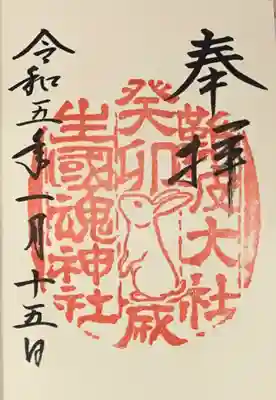 奉拝
難波大社
癸卯歳
生國魂神社
令和五年一月十五日